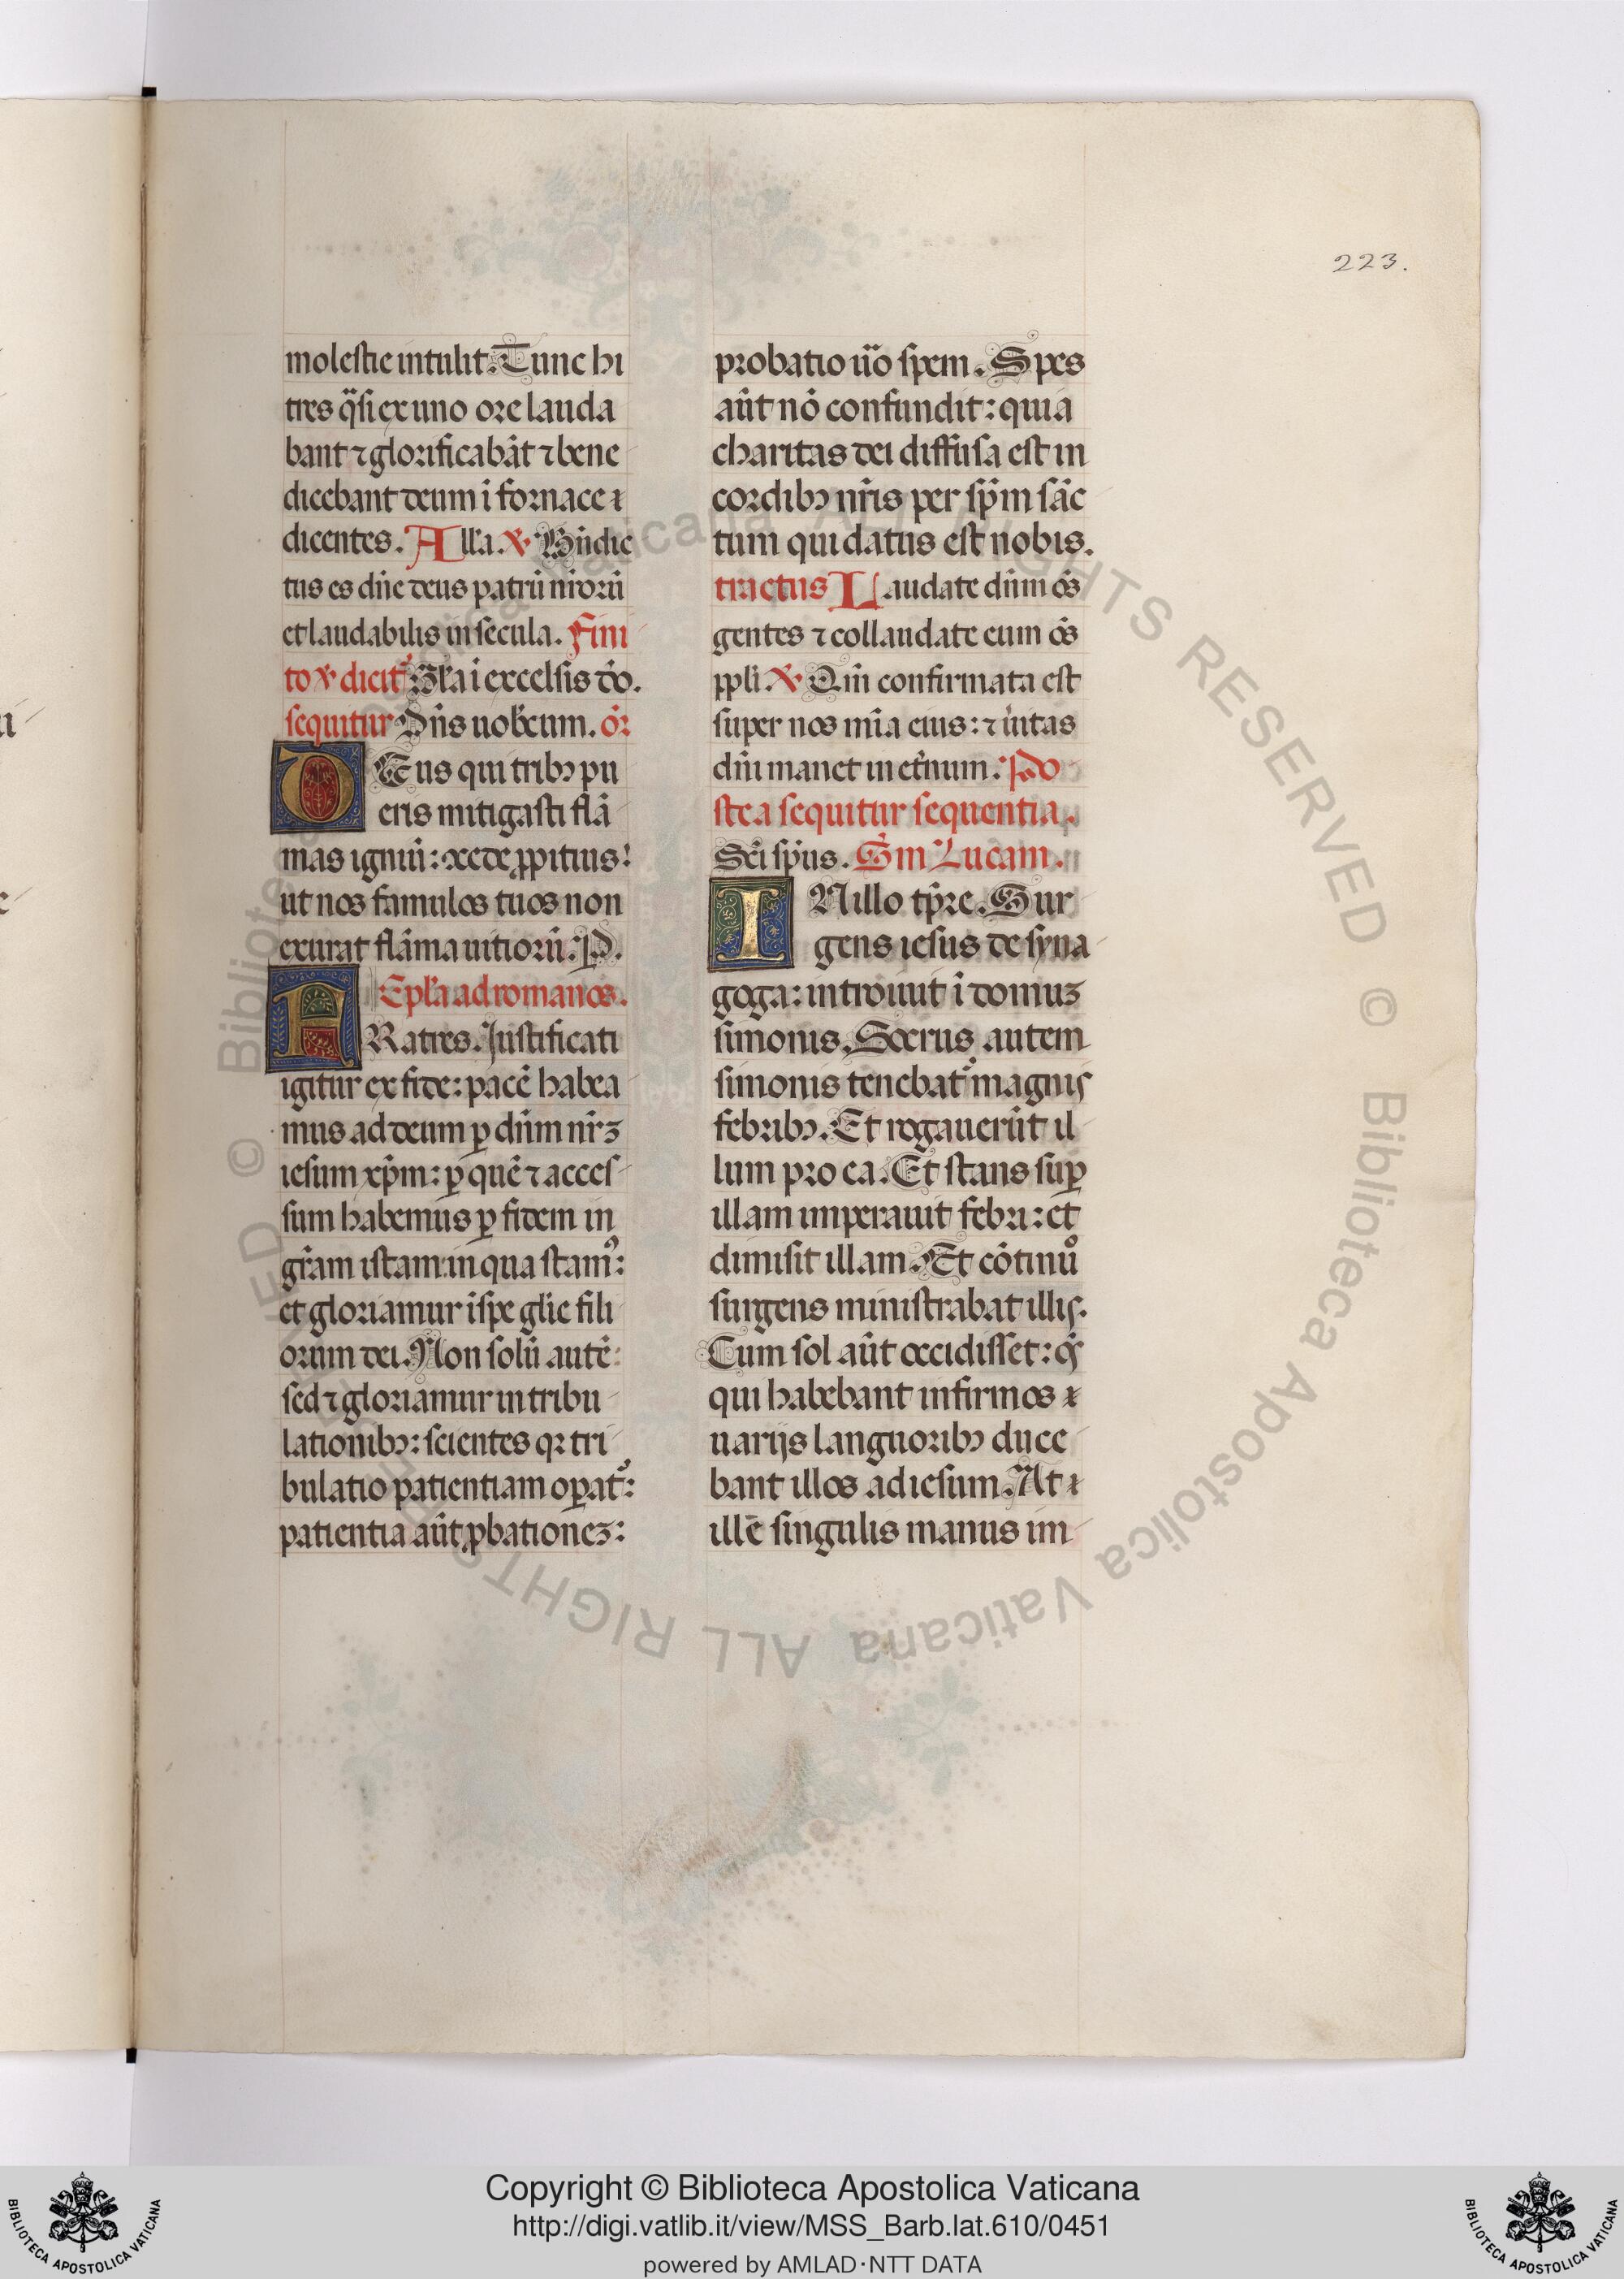 223.
molestie intulit. Tunc hi
tres q̈si ex uno ore lauda
bant ⁊ glorificabāt ⁊ bene
dicebant deum ī fornace
dicentes. All'a. ℣ Bn̄dic
tus es dn̄e deus patrū nr̄orū
et laudabilis in secula. Fini
to ℣ dicit᷑ Gl'a ī excelsis dō.
sequitur Dn̄s uob̄cum. or̄
DEus qui tribꝫ pu
eris mitigasti flā
mas igniū: ↄcede ꝓpitius!
ut nos famulos tuos non
exurat flāma uitiorū. P.
Epl'a ad romanos.
FRatres. Iustificati
igitur ex fide: pacē habea
mus ad deum ꝑ dn̄m nr̄ꝫ
iesum xp̄m: ꝑ quē ⁊ acces
sum habemus ꝑ fidem in
gr̄am istam: in qua stamꝰ:
et gloriamur ī spe gl'ie fili
orum dei. Non solū autē:
sed ⁊ gloriamur in tribu
lationibꝫ: scientes qꝛ tri
bulatio patientiam oꝑat᷑:
patientia aūt ꝓbationeꝫ:
probatio ūo spem. Spes
aūt nō confundit: quia
charitas dei diffusa est in
cordibꝫ nr̄is per sp̄m sāc
tum qui datus est nobis.
tractus Laudate dn̄m ōs
gentes ⁊ collaudate eum ōs
ppl'i. ℣ Qm̄ confirmata est
super nos mīa eius: ⁊ ūitas
dn̄i manet in et̄num. Po
stea sequitur sequentia.
Sc̄i sp̄us. Sm̄ Lucam.
IN illo tp̄re. Sur
gens iesus de syna
goga: introiuit ī domuꝫ
simonis. Socrus autem
simonis tenebat᷑ magnis
febribꝫ. Et rogauerūt il
lum pro ea. Et stans suꝑ
illam imperauit febri: et
dimisit illam. Et cōtinuo
surgens ministrabat illis.
Cum sol aūt occidisset: oēs
qui habebant infirmos
uarijs languoribꝫ duce
bant illos ad iesum. At
ille singulis manus im
© Biblioteca Apostolica Vaticana ALL RIGHTS RESERVED © Biblioteca Apostolica Vaticana ALL RIGHTS RESERVED
Copyright © Biblioteca Apostolica Vaticana
http://digi.vatlib.it/view/MSS_Barb.lat.610/0451
powered by AMLAD·NTT DATA
BIBLIOTECA APOSTOLICA VATICANA
BIBLIOTECA APOSTOLICA VATICANA